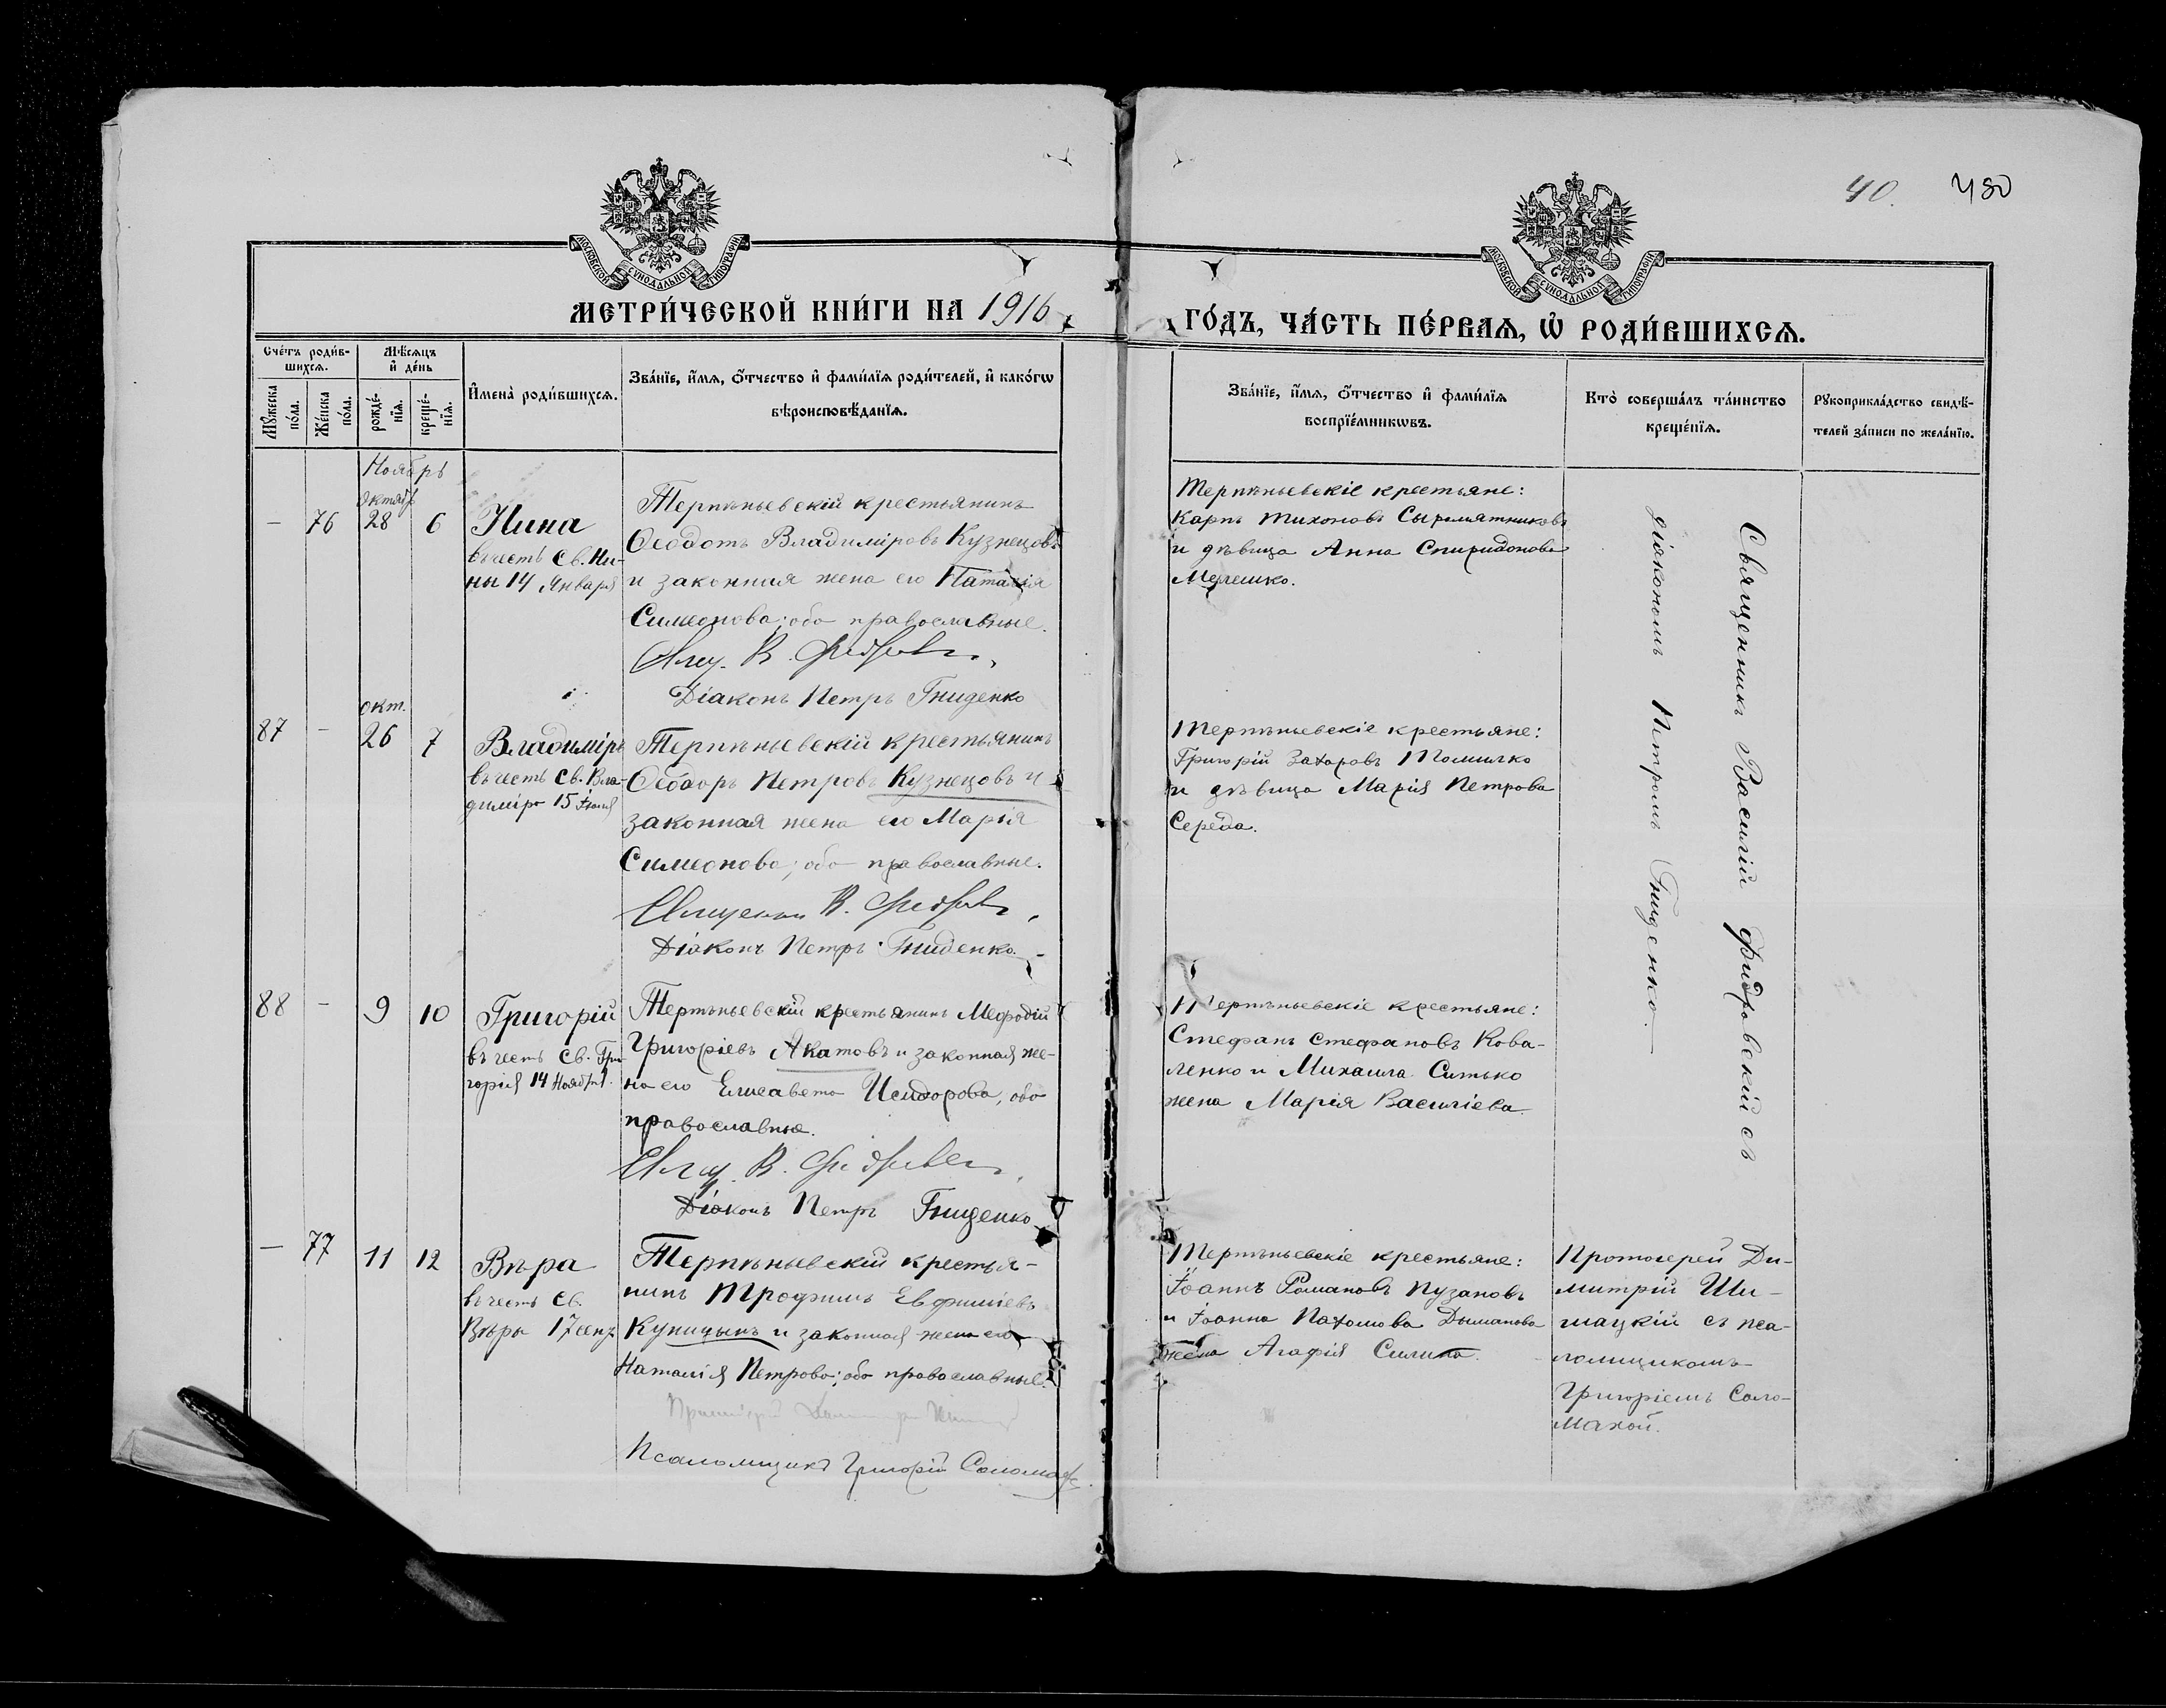 40. 480
МОСКОВСКОЙ СѴНОДАЛЬНОЙ ТИПОГРАФІИ
МОСКОВСКОЙ СѴНОДАЛЬНОЙ ТИПОГРАФІИ
МЕТРИ́ЧЕСКОЙ КНИ́ГИ НА 1916
ГО́ДЪ, ЧА́СТЬ ПЕ́РВАѦ, Ѡ҆ РОДИ́ВШИХСѦ.
Сче́тъ роди́в-
шихсѧ.
Мꙋ́жеска
по́ла.
Же́нска
по́ла.
Мѣ́сѧцъ
и҆ де́нь
рожде́-
нїѧ.
креще́-
нїѧ.
И҆мена̀ роди́вшихсѧ.
Зва́нїе, и҆́мѧ, ѻ҆́тчество и҆ фами́лїѧ роди́телей, и҆ како́гѡ
вѣроисповѣ́данїѧ.
Зва́нїе, и҆́мѧ, ѻ҆́тчество и҆ фами́лїѧ
воспрїе́мникѡвъ.
Кто̀ соверша́лъ та́инство
креще́нїѧ.
Рꙋкоприкла́дство свидѣ́-
телей за́писи по жела́нїю.
Ноябрь
Октябр
— 76 28 6
Нина
въ честь Св. Ни-
ны 14 Января
Терпѣньевскій крестьянинъ
Ѳеодотъ Владиміровъ Кузнецовъ
и законная жена его Наталія
Симеонова; оба православные.
Свящ. В. Фидровскій
Діаконъ Петръ Гниденко
Терпѣньевскіе крестьяне:
Карпъ Тихоновъ Сыромятниковъ
и дѣвица Анна Спиридонова
Мелешко.
Священникъ Василій Фидровскій съ
діакономъ Петромъ Гниденко.
окт.
87 — 26 7
Владиміръ
въ честь Св. Вла-
диміра 15 Іюля
Терпѣньевскій крестьянинъ
Ѳеодоръ Петровъ Кузнецовъ и
законная жена его Марія
Симеонова; оба православные.
Священник В. Фидровскій
Діаконъ Петръ Гниденко.
Терпѣньевскіе крестьяне:
Григорій Захаровъ Томилко
и дѣвица Марія Петрова
Середа.
88 — 9 10
Григорій
въ честь Св. Гри-
горія 14 Ноября.
Терпѣньевскій крестьянинъ Меѳодій
Григоріевъ Акатовъ и законная же-
на его Елисавета Исидорова, оба
православные.
Свящ. В. Фидровскій
Діаконъ Петръ Гниденко
Терпѣньевскіе крестьяне:
Стефанъ Стефановъ Кова-
ленко и Михаила Ситько
жена Марія Василіева
— 77 11 12
Вѣра
въ честь Св.
Вѣры 17 сент.
Терпѣньевскій крестья-
нинъ Трофимъ Евфиміевъ
Куницынъ и законная жена его
Наталія Петрова; оба православные.
Псаломщикъ Григорій Соломаха
Терпѣньевскіе крестьяне:
Іоаннъ Романовъ Пузановъ
и Іоанна Пахомова Дыманова
жена Агафія Силина.
Протоіерей Ди-
митрій Ши-
мацкій съ пса-
ломщикомъ
Григоріемъ Соло-
махой.